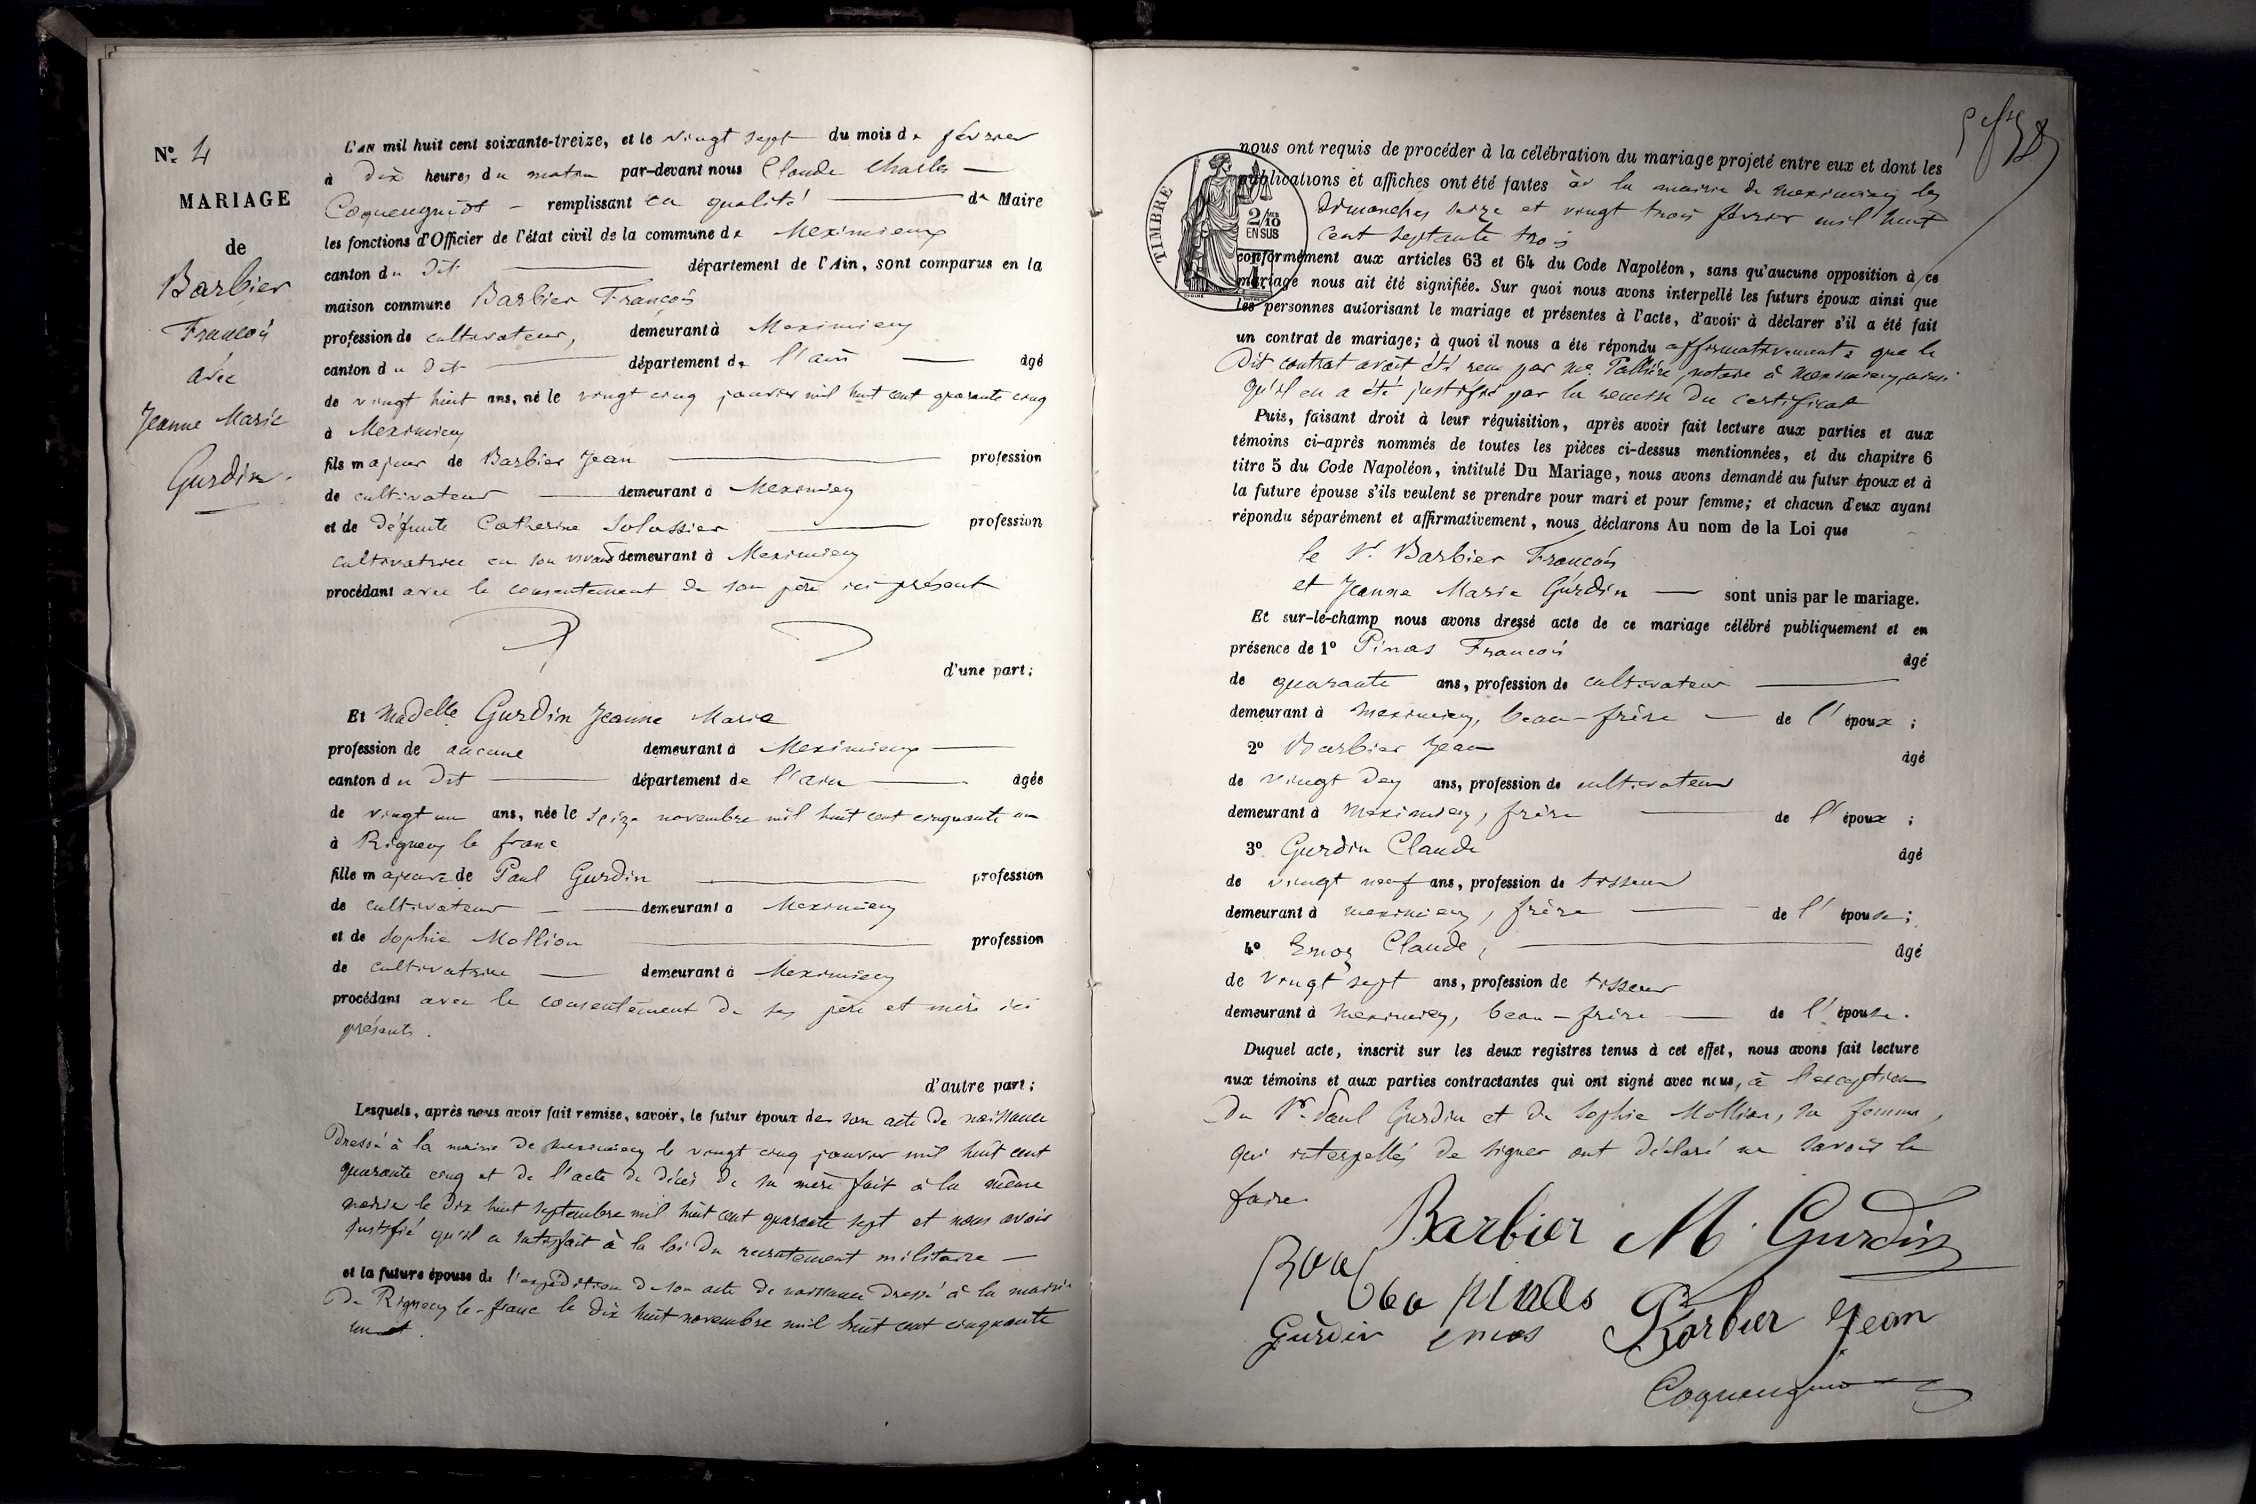 N° 4
MARIAGE
de
Barbier
François
avec
Jeanne Marie
Gurdin.
L'AN mil huit cent soixante-treize, et le vingt sept du mois de février
à dix heures du matin par-devant nous Claude Charles
Coquengniot remplissant en qualité de Maire
les fonctions d'Officier de l'état civil de la commune de Meximieux
canton du dit département de l'Ain, sont comparus en la
maison commune Barbier François
profession de cultivateur, demeurant à Meximieux
canton du dit département de l'ain âgé
de vingt huit ans, né le vingt cinq janvier mil huit cent quarante cinq
à Meximieux
fils majeur de Barbier Jean profession
de cultivateur demeurant à Meximieux
et de défunte Catherine profession
cultivatrice en son vivant demeurant à Meximieux
procédant avec le consentement de son père ici présent
d'une part;
Et Madelle Gurdin Jeanne Marie
profession de aucune demeurant à Meximieux
canton du dit département de l'ain âgée
de vingt un ans, née le seize novembre mil huit cent cinquante un
à Rignieux le franc
fille majeure de Paul Gurdin profession
de cultivateur demeurant à Meximieux
et de Sophie Mollion profession
de cultivatrice demeurant à Meximieux
procédant avec le consentement de ses père et mère ici
présents.
d'autre part;
Lesquels, après nous avoir fait remise, savoir, le futur époux de son acte de naissance
dressé à la mairie de meximieux le vingt cinq janvier mil huit cent
quarante cinq et de l'acte de décès de sa mère fait à la même
mairie le dix huit septembre mil huit cent quarante sept et nous avoir
justifié qu'il a satisfait à la loi du recrutement militaire
et la future épouse de l'expédition de son acte de naissance dressé à la mairie
de Rignieux le-franc le dix huit novembre mil huit cent cinquante
un
nous ont requis de procéder à la célébration du mariage projeté entre eux et dont les
publications et affiches ont été faites à la mairie de meximieux les
TIMBRE
2/10 EN SUS
dimanches seize et vingt trois février mil huit
cent septante trois
conformément aux articles 63 et 64 du Code Napoléon, sans qu'aucune opposition à ce
mariage nous ait été signifiée. Sur quoi nous avons interpellé les futurs époux ainsi que
les personnes autorisant le mariage et présentes à l'acte, d'avoir à déclarer s'il a été fait
un contrat de mariage; à quoi il nous a été répondu affirmativement & que le
dit contrat avait été reçu par me notaire à meximieux, ainsi
qu'il en a été justifié par la remise du certificat
Puis, faisant droit à leur réquisition, après avoir fait lecture aux parties et aux
témoins ci-après nommés de toutes les pièces ci-dessus mentionnées, et du chapitre 6
titre 5 du Code Napoléon, intitulé Du Mariage, nous avons demandé au futur époux et à
la future épouse s'ils veulent se prendre pour mari et pour femme; et chacun d'eux ayant
répondu séparément et affirmativement, nous déclarons Au nom de la Loi que
le Sr Barbier François
et Jeanne Marie Gurdin sont unis par le mariage.
Et sur-le-champ nous avons dressé acte de ce mariage célébré publiquement et en
présence de 1° Pinas François âgé
de quarante ans, profession de cultivateur
demeurant à meximieux, beau-frère de l'époux;
2° Barbier Jean âgé
de vingt deux ans, profession de cultivateur
demeurant à meximieux, frère de l'époux;
3° Gurdin Claude âgé
de vingt neuf ans, profession de tisseur
demeurant à meximieux, frère de l'épouse;
4° Claude, âgé
de vingt sept ans, profession de tisseur
demeurant à meximieux, beau-frère de l'épouse.
Duquel acte, inscrit sur les deux registres tenus à cet effet, nous avons fait lecture
aux témoins et aux parties contractantes qui ont signé avec nous, à l'exception
du Sr. Paul Gurdin et de Sophie Mollion, sa femme,
qui interpellés de signer ont déclaré ne savoir le
faire
Barbier M. Gurdin
pinas
Gurdin Barbier Jean
Coquengniot